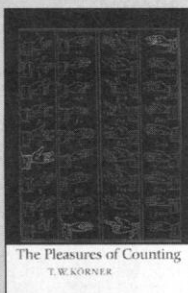 The Pleasures of Counting
T. W. KÖRNER